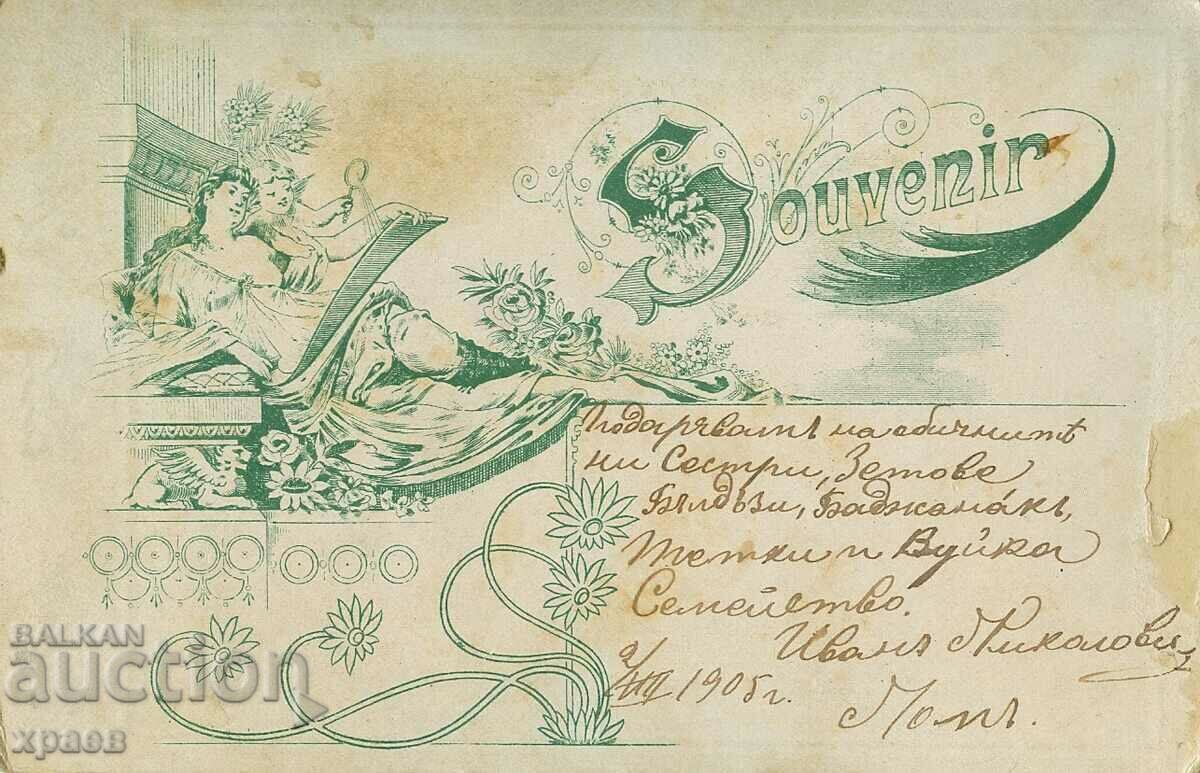 Souvenir
Подарявамъ на обичнитѣ
ни Сестри, Зетове
Балдъзи, Баджанáкъ,
Тетки и Вуйка
Семейство.
Иванъ Николови
1905 г.
Ломъ.
BALKAN
auction
храев